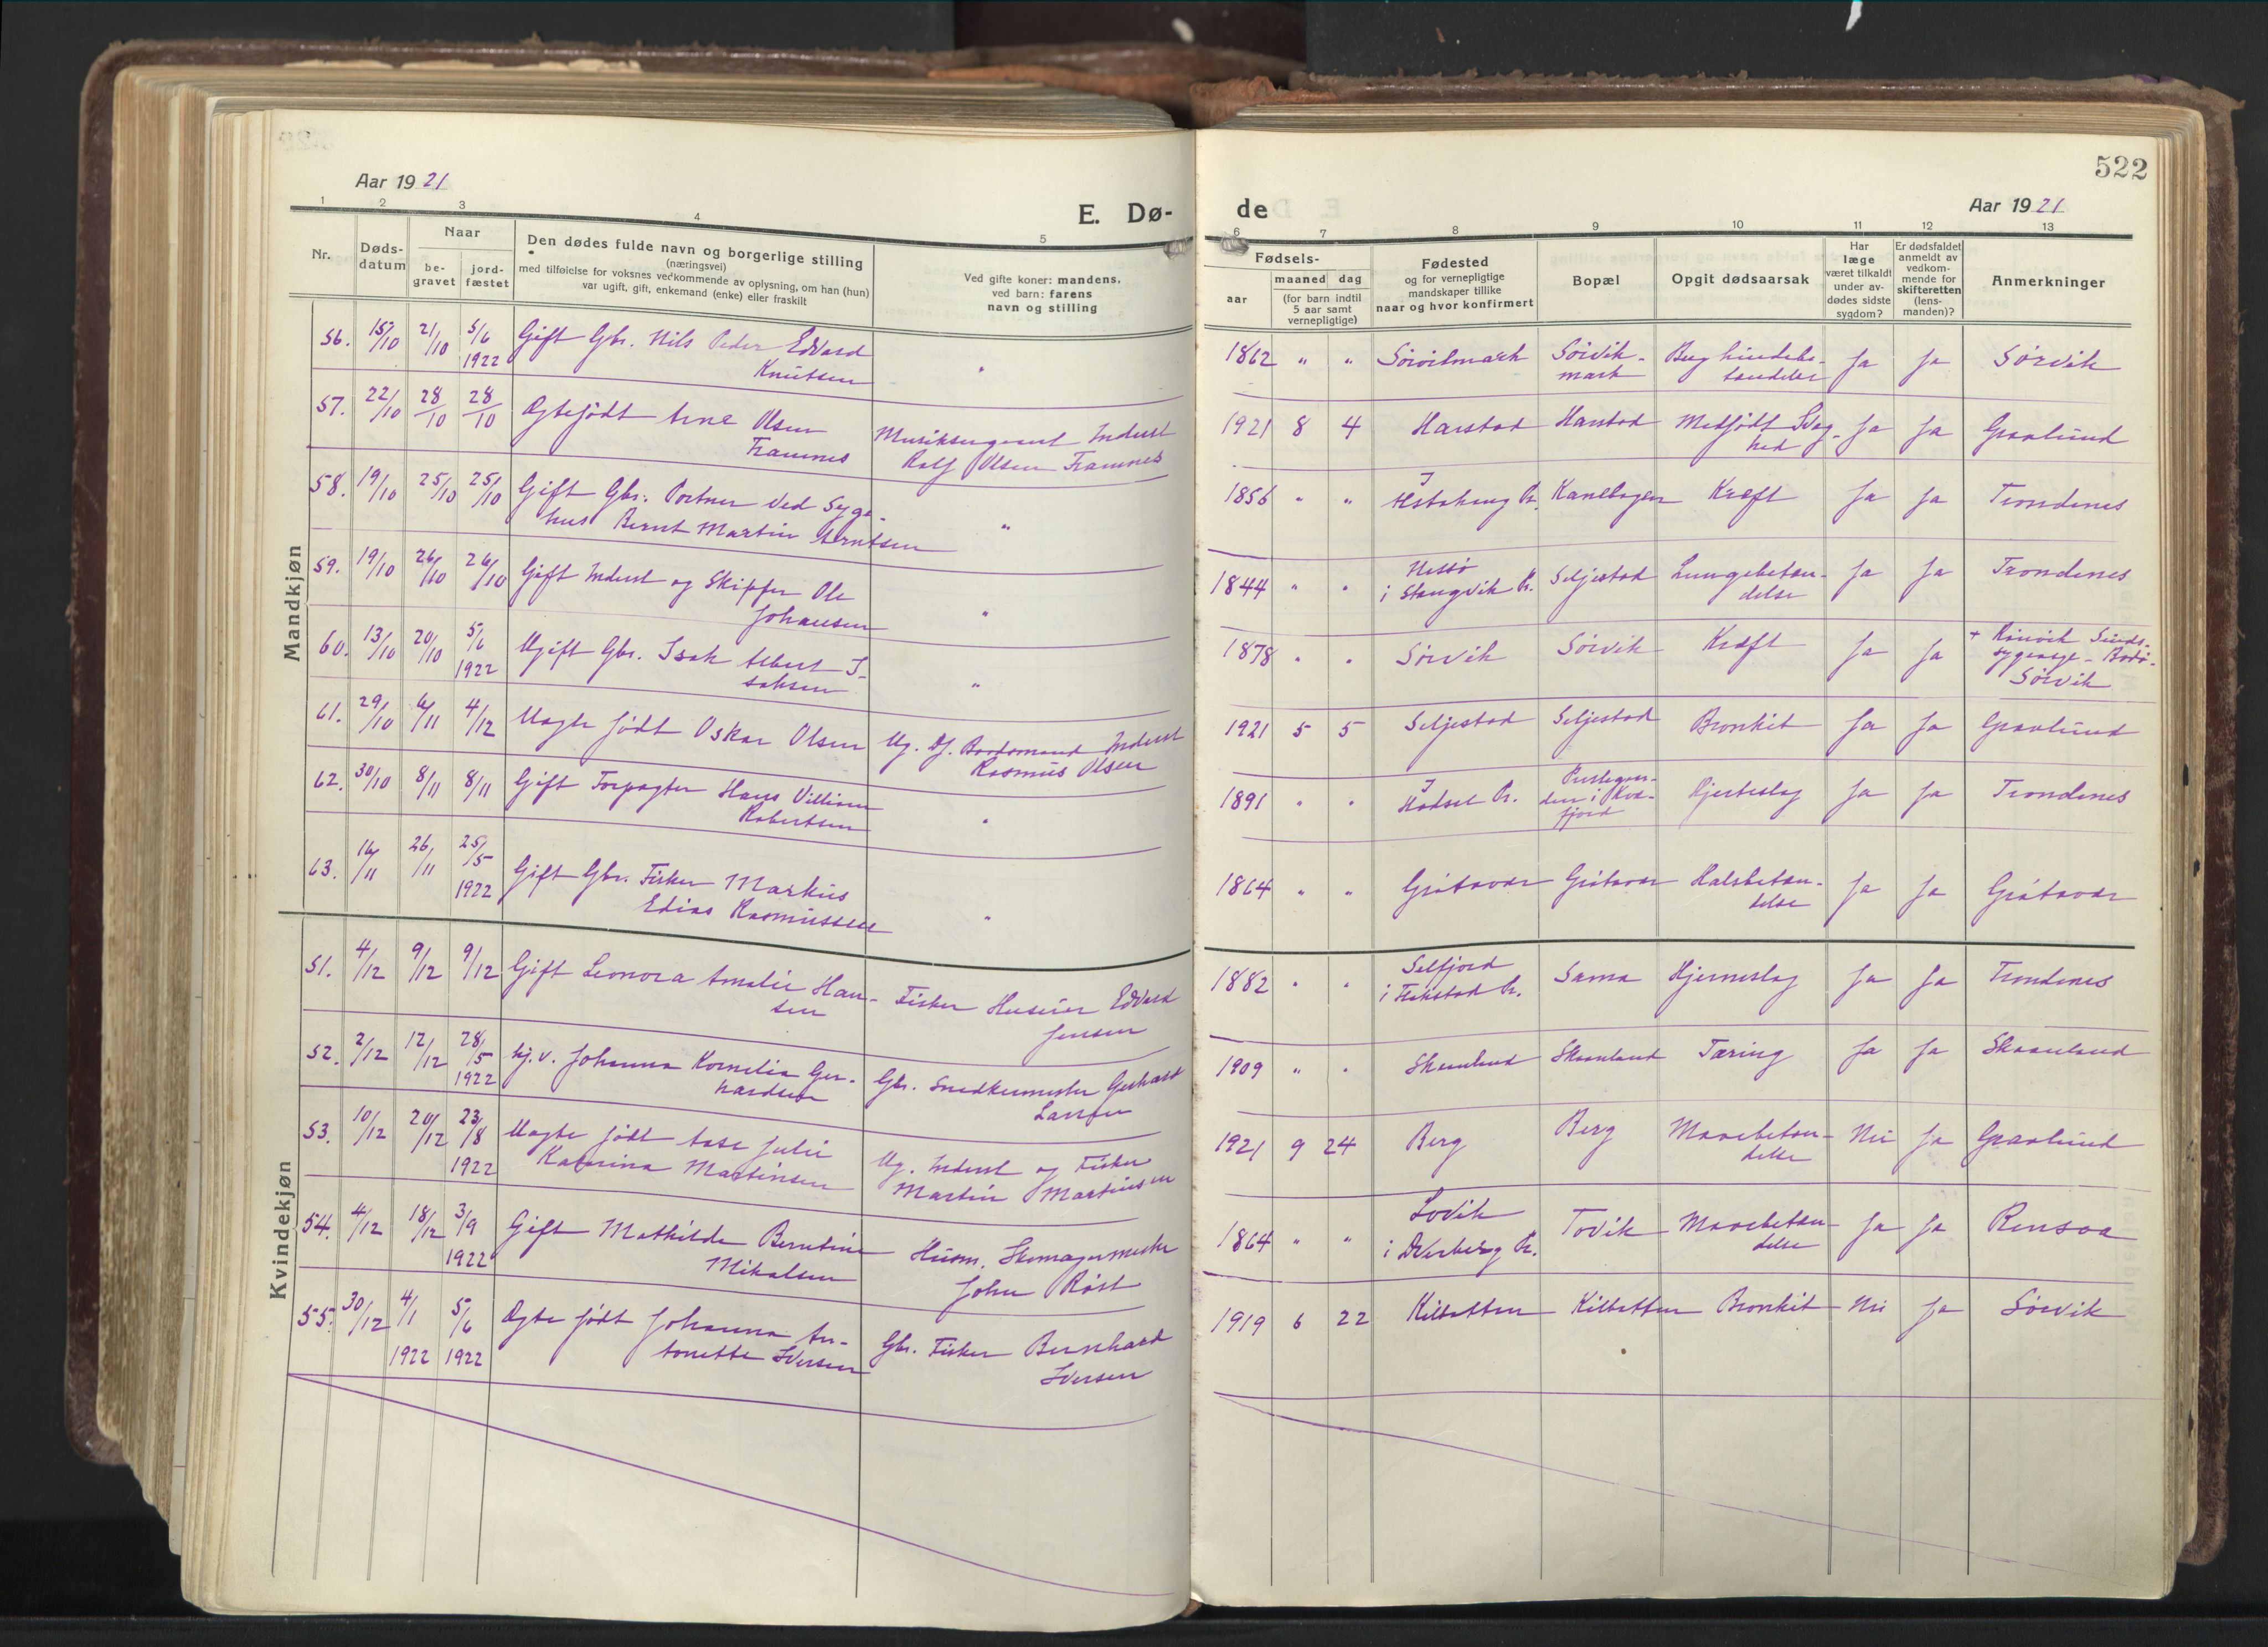 522
Aar 1921
Aar 1921
E. Dø-
de
1 2 3 4 5
6 7 8 9 10 11 12 13
Nr.
Døds-
datum
Naar
be-
gravet
jord-
fæstet
Den dødes fulde navn og borgerlige stilling
(næringsvei)
med tilføielse for voksnes vedkommende av oplysning, om han (hun)
var ugift, gift, enkemand (enke) eller fraskilt
Ved gifte koner: mandens,
ved barn: farens
navn og stilling
Fødsels-
aar
maaned dag
(for barn indtil
5 aar samt
vernepligtige)
Fødested
og for vernepligtige
mandskaper tillike
naar og hvor konfirmert
Bopæl
Opgit dødsaarsak
Har
læge
været tilkaldt
under av-
dødes sidste
sygdom?
Er dødsfaldet
anmeldt av
vedkom-
mende for
skifteretten
(lens-
manden)?
Anmerkninger
Mandkjøn
56. 15/10 21/10 5/6 1922 Gift Gbr. Nils Peder Edvard
Knutsen "
1862 " " Sørvikmark Sørvik-
mark Ja Ja Sørvik
57. 22/10 28/10 28/10 Ægtefødt Arne Olsen
Framnes
Musiksergeant Inderst
Rolf Olsen Framnes
1921 8 4 Harstad Harstad Medfødt Svag-
hed Ja Ja Graalund
58. 19/10 25/10 25/10 Gift Gbr. Portner ved Syge-
hus Bernt Martin Arntsen "
1856 " " I
Alstahaug Pr. Kanebogen Kræft Ja Ja Trondenes
59. 19/10 26/10 26/10 Gift Inderst og Skipper Ole
Johansen "
1844 " "
i Stangvik Pr. Seljestad Lungebetæn-
delse Ja Ja Trondenes
60. 13/10 20/10 5/6 1922 Ugift Gbr. Isak Albert I-
saksen "
1878 " " Sørvik Sørvik Kræft Ja Ja + Rønvik Sinds-
sygeasyl - Bodø.
Sørvik
61. 29/10 6/11 4/12 Uægte født Oskar Olsen
Ug. Inderst
Rasmus Olsen
1921 5 5 Seljestad Seljestad Bronkit Ja Ja Graalund
62. 30/10 8/11 8/11 Gift Forpagter Hans Villiam
Robertsen "
1891 " " I
Hadsel Pr. Prestegaar-
den i Kvæ-
fjord Hjerteslag Ja Ja Trondenes
63. 16/11 26/11 25/5 1922 Gift Gbr. Fisker Markus
Edias Rasmussen "
1864 " " Grøtavær Grøtavær Halsbetæn-
delse Ja Ja Grøtavær
Kvindekjøn
51. 4/12 9/12 9/12 Gift Leonora Amalie Han-
sen
Fisker Huseier Edvard
Jensen
1882 " " Selfjord
i Flakstad Pr. Sama Hjerneslag Ja Ja Trondenes
52. 2/12 12/12 28/5 1922 hj.v. Johanna Kornelia Ger-
hardsen
Gbr. Snedkermester Gerhard
Larsen
1909 " " Skaanland Skaanland Tæring Ja Ja Skaanland
53. 10/12 20/12 23/8 1922 Uægte født Aase Julie
Katrina Martinsen
Ug. Inderst og Fisker
Martin Martinsen
1921 9 24 Berg Berg Mavebetæn-
delse Nei Ja Graalund
54. 4/12 18/12 3/9 1922 Gift Mathilde Berntine
Mikalsen
Husm. Skomagermester
John Røst
1864 " "
i Dverberg Pr. Tovik Mavebetæn-
delse Ja Ja Rensaa
55. 30/12 4/1 1922 5/6 1922 Ægte født Johanna An-
tonette Iversen
Gbr. Fisker Bernhard
Iversen
1919 6 22 Kilbotten Kilbotten Bronkit Nei Ja Sørvik